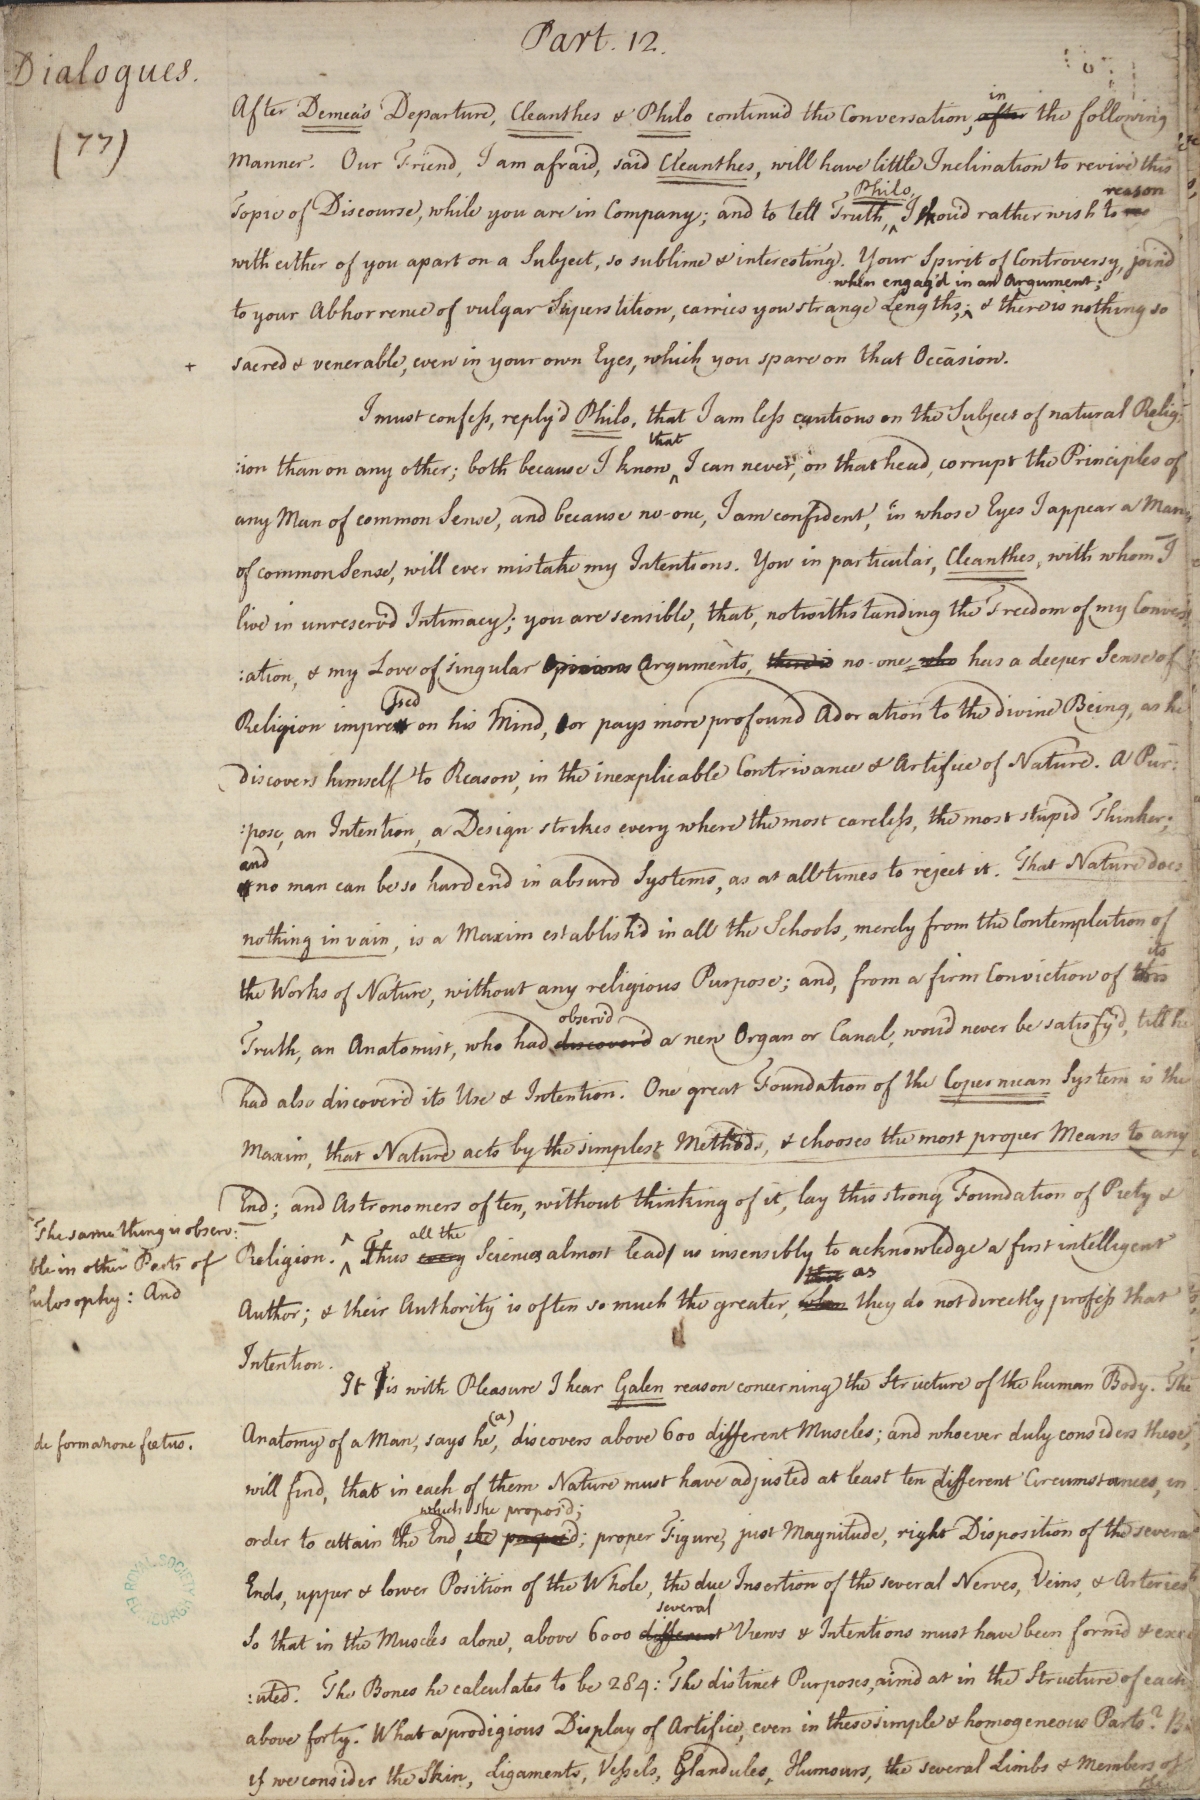 Part. 12.
Dialogues.
(77)
After Demea's Departure, Cleanthes & Philo continu'd the Conversation, after in the following
manner. Our Friend, I am afraid, said Cleanthes, will have little Inclination to revive this
Topic of Discourse, while you are in Company; and to tell Truth, Philo, I shou'd rather wish to reason
with either of you apart on a Subject, so sublime & interesting. Your Spirit of Controversy, join'd
to your Abhorrence of vulgar Superstition, carries you strange Lengths, when engag'd in an Argument; & there is nothing so
sacred & venerable, even in your own Eyes, which you spare on that Occasion.
+
I must confess, reply'd Philo, that I am less cautious on the Subject of natural Relig:
:ion than on any other; both because I know that I can never, on that head, corrupt the Principles of
any Man of common Sense, and because no-one, I am confident, in whose Eyes I appear a Man
of common Sense, will ever mistake my Intentions. You in particular, Cleanthes, with whom I
live in unreserv'd Intimacy; you are sensible, that, notwithstanding the Freedom of my Convers
:ation, & my Love of singular Opinions Arguments, there is no-one who has a deeper Sense of
Religion impressed on his Mind, or pays more profound Adoration to the divine Being, as he
discovers himself to Reason, in the inexplicable Contrivance & Artifice of Nature. A Pur:
:pose, an Intention, a Design strikes every where the most careless, the most stupid Thinker;
and no man can be so harden'd in absurd Systems, as at all times to reject it. That Nature does
nothing in vain, is a Maxim establish'd in all the Schools, merely from the Contemplation of
the Works of Nature, without any religious Purpose; and, from a firm Conviction of this its
Truth, an Anatomist, who had discover'd observ'd a new Organ or Canal, wou'd never be satisfy'd, till he
had also discover'd its Use & Intention. One great Foundation of the Copernican System is the
Maxim, that Nature acts by the simplest Methods, & chooses the most proper Means to any
End; and Astronomers often, without thinking of it, lay this strong Foundation of Piety &
The same thing is observ:
ble in other Parts of
hilosophy: And
Religion. Thus every all the Sciences almost lead us insensibly to acknowledge a first intelligent
Author; & their Authority is often so much the greater, when that as they do not directly profess that
Intention.
It is with Pleasure I hear Galen reason concerning the Structure of the human Body. The
Anatomy of a Man, says he, (a) discovers above 600 different Muscles; and whoever duly considers these,
de formatione fœtus.
will find, that in each of them Nature must have adjusted at least ten different Circumstances, in
order to attain the End, she propos'd which she propos'd; proper Figure, just Magnitude, right Disposition of the several
Ends, upper & lower Position of the Whole, the due Insertion of the several Nerves, Veins, & Arteries:
So that in the Muscles alone, above 6000 different several Views & Intentions must have been form'd & exec
:uted. The Bones he calculates to be 284: The distinct Purposes, aim'd at in the Structure of each
above forty. What a prodigious Display of Artifice, even in these simple & homogeneous Parts? B
if we consider the Skin, Ligaments, Vessels, Glandules, Humours, the several Limbs & Members of
ROYAL SOCIETY EDINBURGH